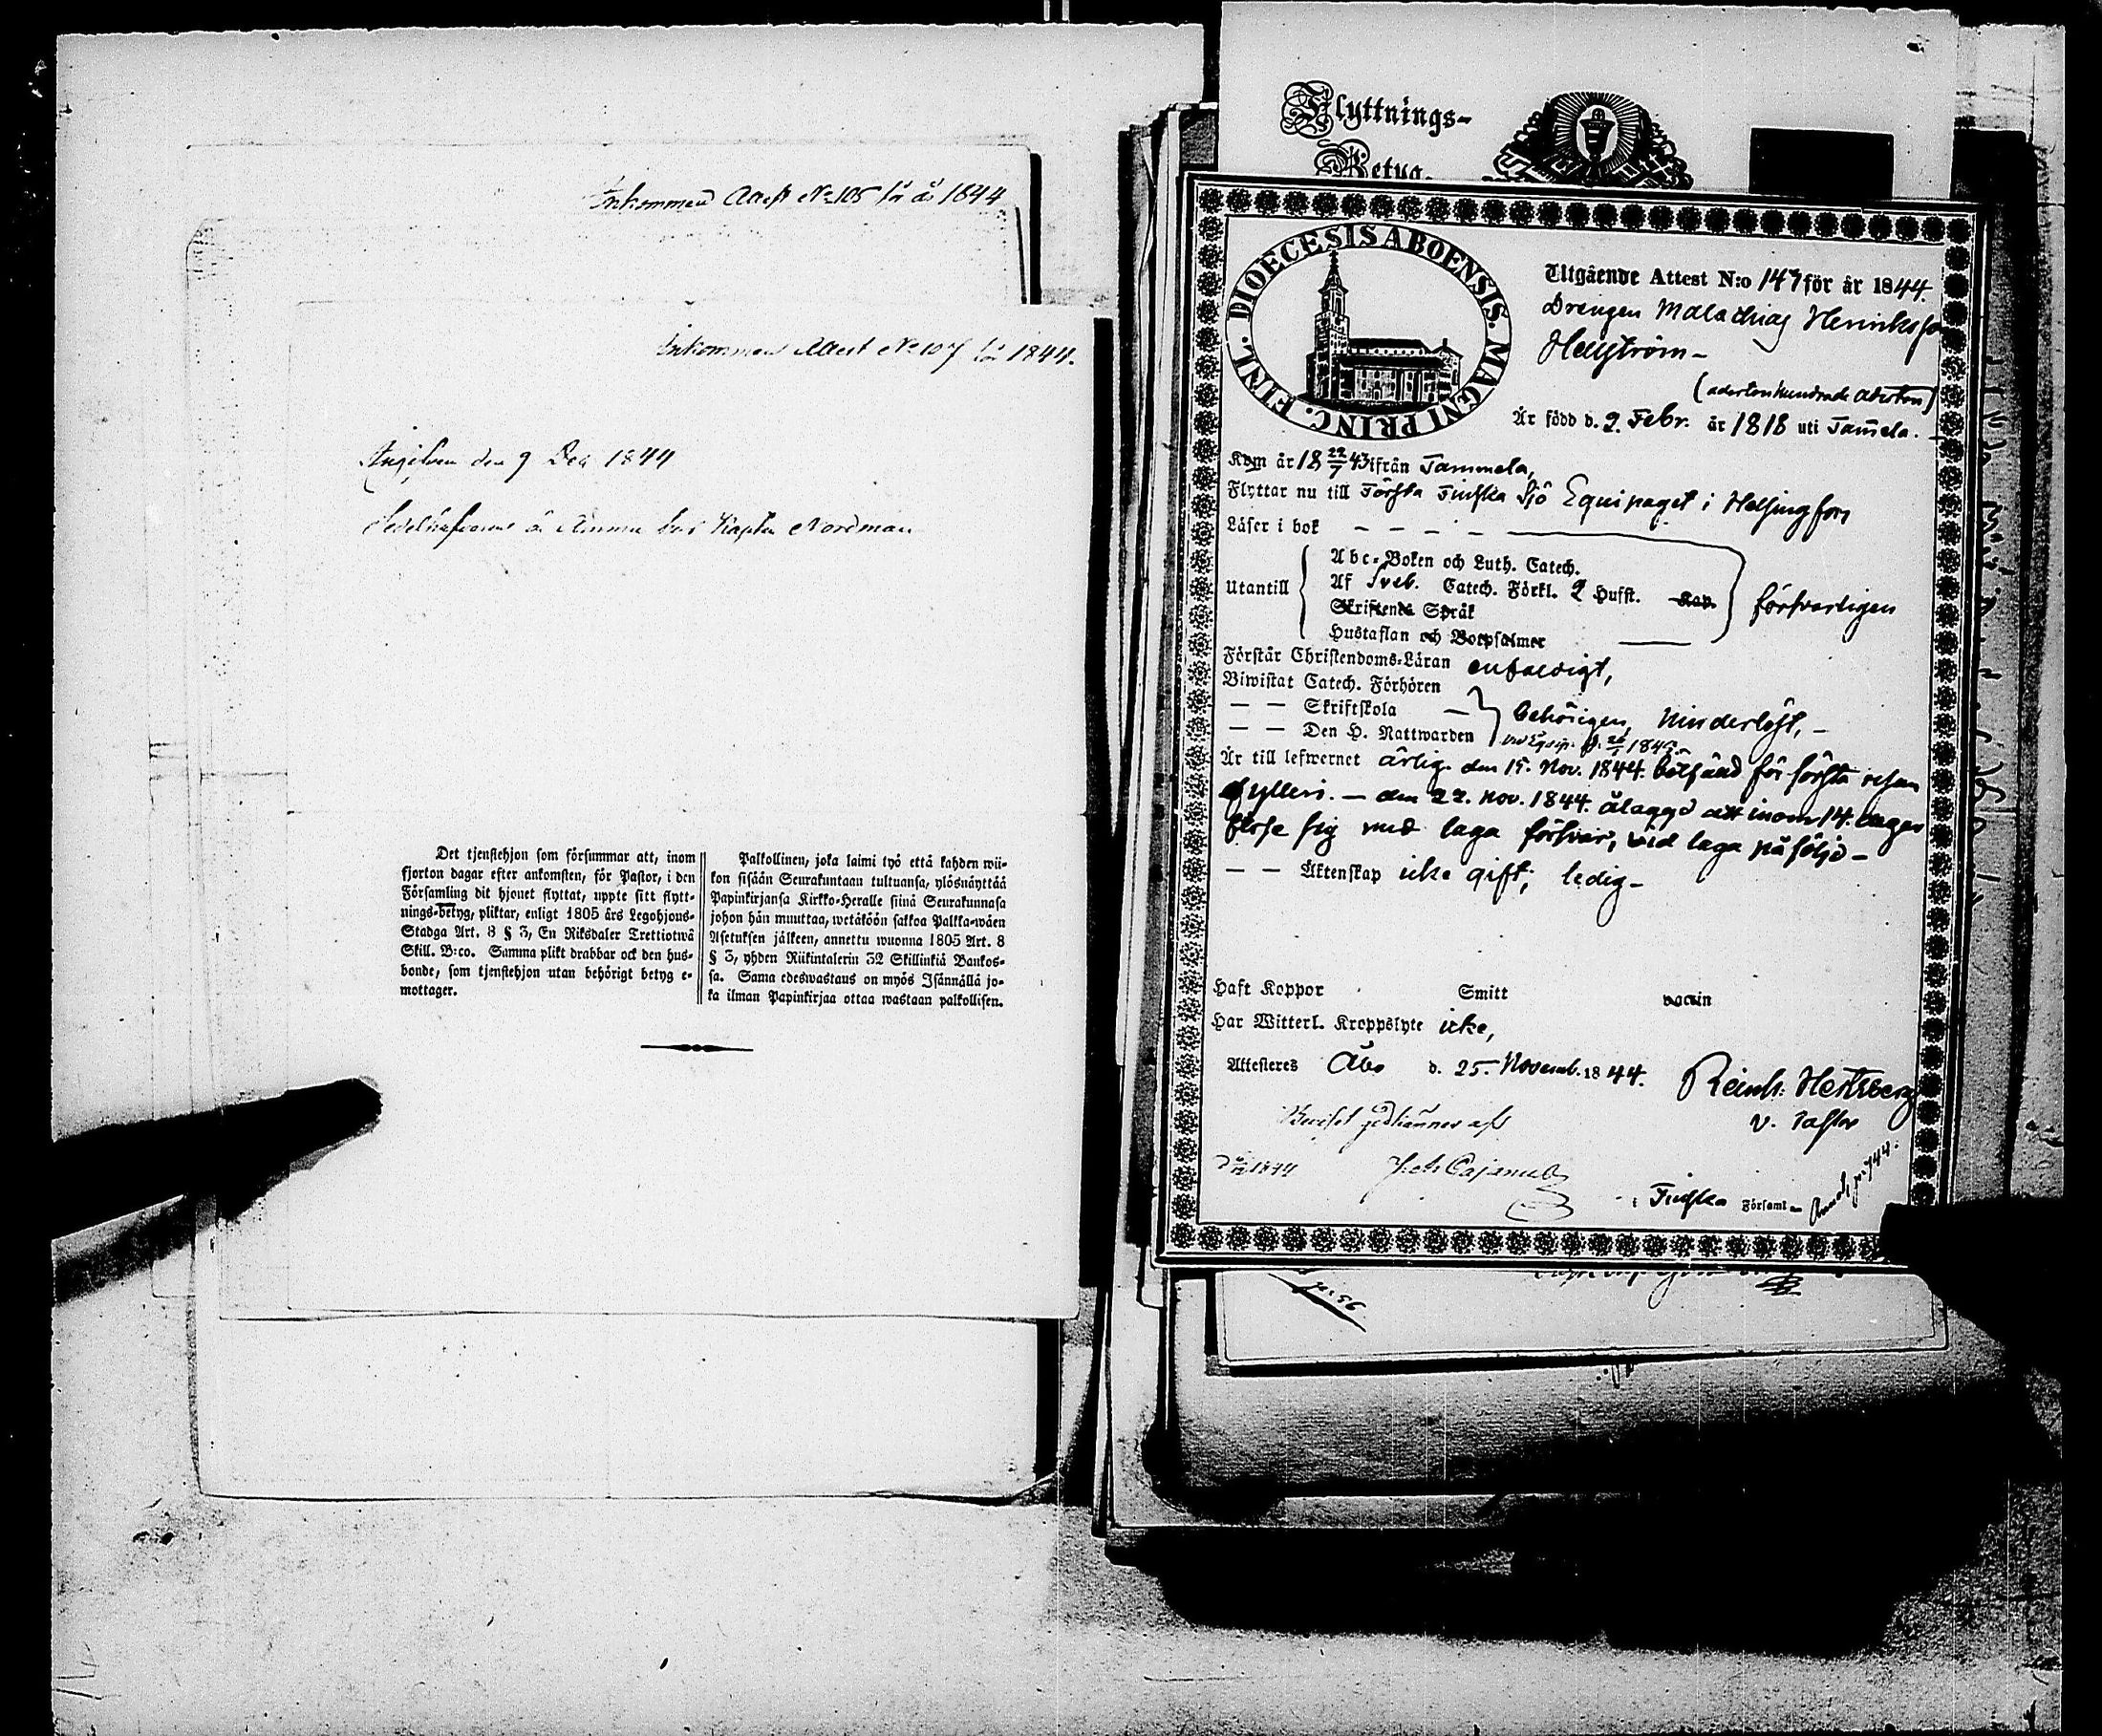 Inkommen Attest No 105 för år 1844
Inkommen Attest No 107 för 1844.
Angifven den 9 Dec 1844
Sedelhafvarens är Amma hos Kapten Nordman
Det tjenstehjon som försummar att, inom
fjorton dagar efter ankomsten, för Pastor, i den
Församling dit hjonet flyttat, uppte sitt flytt-
nings-betyg, pliktar, enligt 1805 års Legohjons-
Stadga Art. 8 § 3, En Riksdaler Trettiotwå
Skill. B:co. Samma plikt drabbar ock den hus-
bonde, som tjenstehjon utan behörigt betyg e-
mottager.
Palkollinen, joka laimi lyö että kahden wii-
kon sisään Seurakuntaan tultuansa, ylösnäyttää
Papinkirjansa Kirkko-Heralle siinä Seurakunnasa
johon hän muuttaa, wetäköön sakkoa Palkka-wäen
Asetuksen jälkeen, annettu wuonna 1805 Art. 8
§ 3, yhden Riikintalerin 32 Skillinkiä Bankos-
sa. Sama edeswastaus on myös Isännällä jo-
ka ilman Papinkirjaa ottaa wastaan palkollisen.
Flyttnings-
Betyg.
DIOECESIS ABOENSIS. MAGNI PRINC. FINL.
Utgående Attest N:o 147 för år 1844.
Drengen Malachias Henriksson
Hellström -
(adertonhundrade aderton)
Är född d. 2. Febr. år 1818 uti Tam̄ela.
Kom år 18 22/7 43 ifrån Tammela,
Flyttar nu till Första Finska Sjö Equipaget i Helsingfors
Läser i bok - - - -
Abc-Boken och Luth. Catech.
Utantill Af Sveb. Catech. Förkl. 2 Hufst. Kap. försvarligen
Skriftenes Språk
Hustaflan och Botpsalmer
Förstår Christendoms-Läran enfaldigt,
Biwistat Catech. Förhören
— — Skriftskola — behörigen, hinderlöst, -
— — Den H. Nattwarden
Är till lefwernet ärlig. den 15. Nov. 1844. bötfäld för första resan
fylleri. — den 22. Nov. 1844. ålaggd att inom 14. dagar
förse sig med laga försvar, vid laga påföljd -
— — Äktenskap icke gift; ledig -
Haft Koppor Smitt vaccin
Har Witterl. Kroppslyte icke,
Attesteres Åbo d. 25. Novemb. 1844.
Reinh. Hertzberg
v. Pastor
Beviset
1844 Cajanus
i Finska Församl.